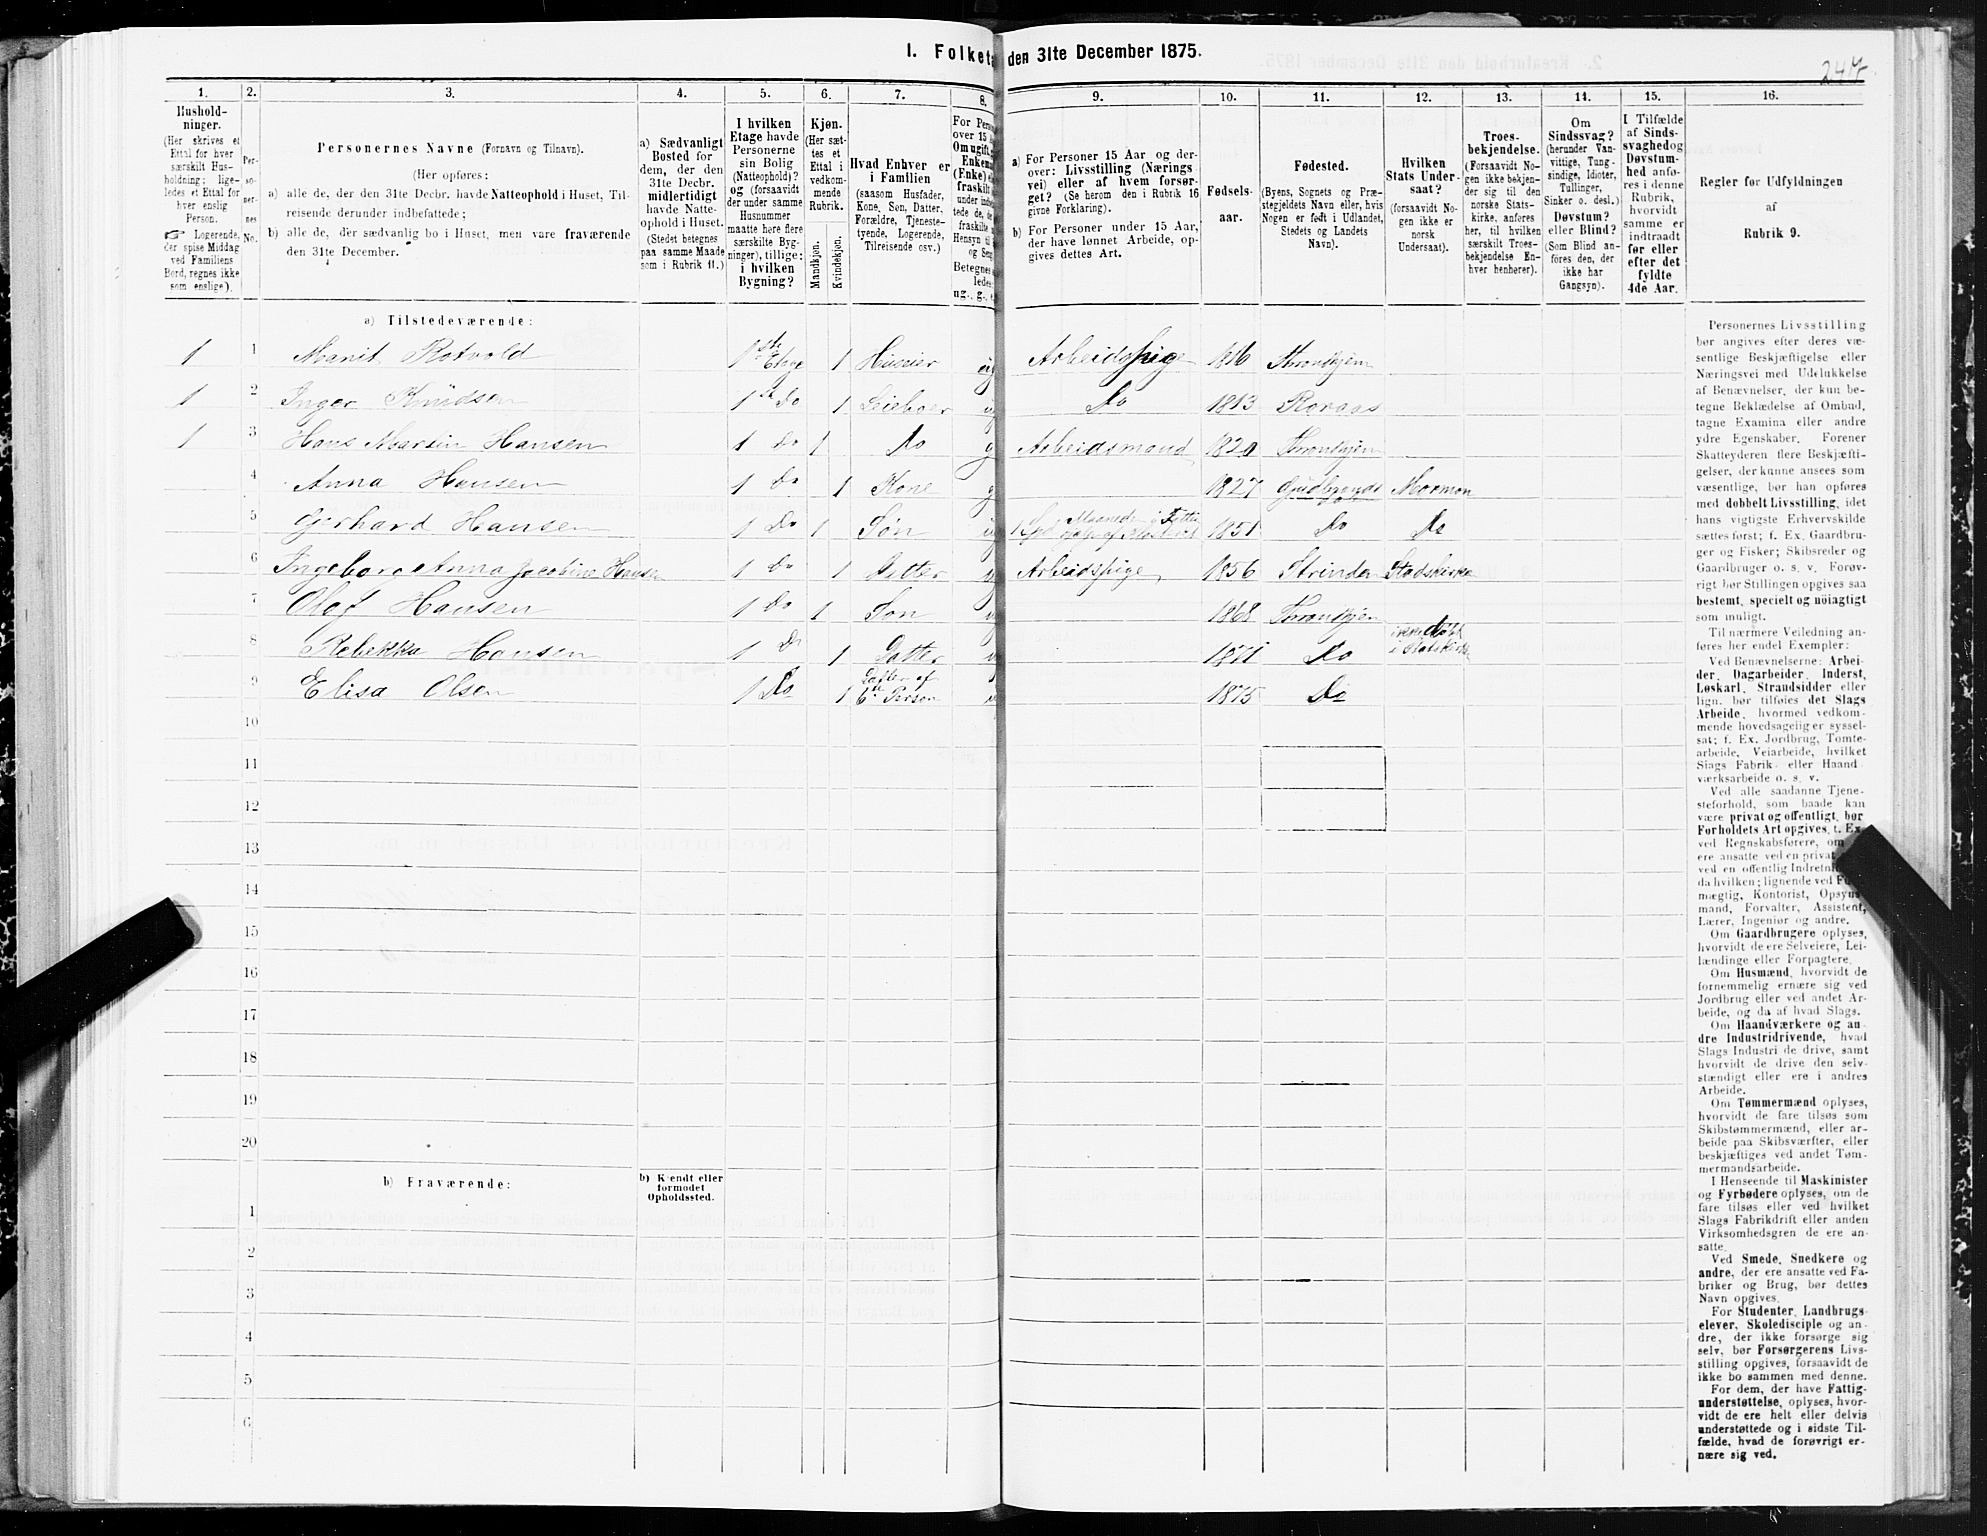 I. Folketæ den 31te December 1875.
247
1. 2. 3. 4. 5. 6. 7. 8. 9. 10. 11. 12. 13. 14. 15. 16.
Hushold-
ninger.
(Her skrives et
Ettal for hver
særskilt Hus-
holdning; lige-
ledes et Ettal for
hver enslig
Person.
☞ Logerende,
der spise Middag
ved Familiens
Bord, regnes ikke
som enslige).
Per-
so-
ner-
nes
No.
Personernes Navne (Fornavn og Tilnavn).
(Her opføres:
a) alle de, der den 31te Decbr. havde Natteophold i Huset, Til-
reisende derunder indbefattede;
b) alle de, der sædvanlig bo i Huset, men vare fraværende
den 31te December.
a) Sædvanligt
Bosted for
dem, der den
31te Decbr.
midlertidigt
havde Natte-
ophold i Huset.
(Stedet betegnes
paa samme Maade
som i Rubrik 11.)
I hvilken
Etage havde
Personerne
sin Bolig
(Natteophold)?
og (forsaavidt
der under samme
Husnummer
maatte høre flere
særskilte Byg-
ninger), tillige:
i hvilken
Bygning?
Kjøn.
(Her sæt-
tes et
Ettal i
vedkom-
mende
Rubrik.
Mandkjøn.
Kvindekjøn.
Hvad Enhver er
i Familien
(saasom Husfader,
Kone, Søn, Datter,
Forældre, Tjeneste-
tyende, Logerende,
Tilreisende osv.)
For Perso
over 15 A
Om ugift, g
Enkema
(Enke) e
fraskilt
under indb
tede de, d
fraskilte
Hensyn til
og Sen
Betegnes
ledes:
ug., g., e
a) For Personer 15 Aar og der-
over: Livsstilling (Nærings
vei) eller af hvem forsør-
get? (Se herom den i Rubrik 16
givne Forklaring).
b) For Personer under 15 Aar,
der have lønnet Arbeide, op-
gives dettes Art.
Fødsels-
aar.
Fødested.
(Byens, Sognets og Præ-
stegjeldets Navn eller, hvis
Nogen er født i Udlandet,
Stedets og Landets
Navn).
Hvilken
Stats Under-
saat?
(forsaavidt No-
gen ikke er
norsk
Undersaat).
Troes-
bekjendelse.
(Forsaavidt No-
gen ikke bekjen-
der sig til den
norske Stats-
kirke, anføres
her, til hvilken
særskilt Troes-
bekjendelse En-
hver henhører).
Om
Sindssvag?
(herunder Van-
vittige, Tung-
sindige, Idioter,
Tullinger,
Sinker o. desl.)
Døvstum?
eller Blind?
(Som Blind an-
føres den, der
ikke har
Gangsyn).
I Tilfælde
af Sinds-
svaghed og
Døvstum-
hed anfø-
res i denne
Rubrik,
hvorvidt
samme er
indtraadt
før eller
efter det
fyldte
4de Aar.
Regler før Udfyldningen
af
Rubrik 9.
a) Tilstedeværende:
1 1 Marit Rotvold 1ste Etage 1 Huseier ug Arbeidspige 1816 Throndhjem
1 2 Inger Knudsen 1 Do 1 Leieboer ug Do 1813 Roraas
1 3 Hans Martin Hansen 1 Do 1 Do g Arbeidsmand 1820 Throndhjem
4 Anna Hansen 1 Do 1 Kone g 1827 Gudbrands Mormon
5 Gerhard Hansen 1 Do 1 Søn 1851 Do Do
6 Ingeborg Anna Jacobine Hansen 1 Do 1 Datter Arbeidspige 1856 Strinden Stadskirke
7 Olaf Hansen 1 Do 1 Søn 1868 Throndhjem
8 Rebekka Hansen 1 Do 1 Datter 1871 Do ikke døbt
i Statskirke
9 Elisa Olsen 1 Do 1 Datter af
6te Person 1875 Do
10
11
12
13
14
15
16
17
18
19
20
b) Fraværende:
b) Kjendt eller
formodet
Opholdssted.
1
2
3
4
5
6
Personernes Livsstilling
bør angives efter deres væ-
sentlige Beskjæftigelse eller
Næringsvei med Udelukkelse
af Benævnelser, der kun be-
tegne Beklædelse af Ombud,
tagne Examina eller andre
ydre Egenskaber. Forener
Skatteyderen flere Beskjæfti-
gelser, der kunne ansees som
væsentlige, bør han opføres
med dobbelt Livsstilling, idet
hans vigtigste Erhvervskilde
sættes først; f. Ex. Gaardbru-
ger og Fisker; Skibsreder og
Gaardbruger o. s. v. Forøv-
rigt bør Stillingen opgives saa
bestemt, specielt og nöiagtigt
som muligt.
Til nærmere Veiledning an-
føres her endel Exempler:
Ved Benævnelserne: Arbei-
der, Dagarbeider, Inderst,
Løskarl, Strandsidder eller
lign. bør tilføies det Slags
Arbeide, hvormed vedkom-
mende hovedsagelig er syssel-
sat; f. Ex. Jordbrug, Tomte-
arbeide, Veiarbeide, hvilket
Slags Fabrik- eller Haand
værksarbeide o. s. v.
Ved alle saadanne Tjene-
steforhold, som baade kan
være privat og offentligt, bør
Forholdets Art opgives, t. Ex.
ved Regnskabsførere, om
ere ansatte ved en privat
ved en offentlig Indretn
da hvilken; lignende ved Fu
mægtig, Kontorist, Opsyns
mand, Forvalter, Assistent,
Lærer, Ingeniør og andre.
Om Gaardbrugere oplyses,
hvorvidt de ere Selveiere, Lei-
lændinge eller Forpagtere.
Om Husmænd, hvorvidt de
fornemmelig ernære sig ved
Jordbrug eller ved andet Ar-
beide, og da af hvad Slags.
Om Haandværkere og an-
dre Industridrivende, hvad
Slags Industri de drive, samt
hvorvidt de drive den selv-
stændigt eller ere i andres
Arbeide.
Om Tømmermænd oplyses,
hvorvidt de fare tilsøs som
Skibstømmermænd, eller ar-
beide paa Skibsværfter, eller
beskjæftiges ved andet Tøm-
mermandsarbeide.
I Henseende til Maskinister
og Fyrbødere oplyses, om de
fare tilsøs eller ved hvilket
Slags Fabrikdrift eller anden
Virksomhedsgren de ere an-
satte.
Ved Smede, Snedkere og
andre, der ere ansatte ved Fa-
briker og Brug, bør dettes
Navn opgives.
For Studenter, Landbrugs-
elever, Skoledisciple og an-
dre, der ikke forsørge sig
selv, bør Forsørgerens Livs-
stilling opgives, forsaavidt de
ikke bo sammen med denne.
For dem, der have Fattig-
understøttelse, oplyses, hvor-
vidt de ere helt eller delvis
understøttede og i sidste Til-
fælde, hvad de forøvrigt er-
nære sig ved.